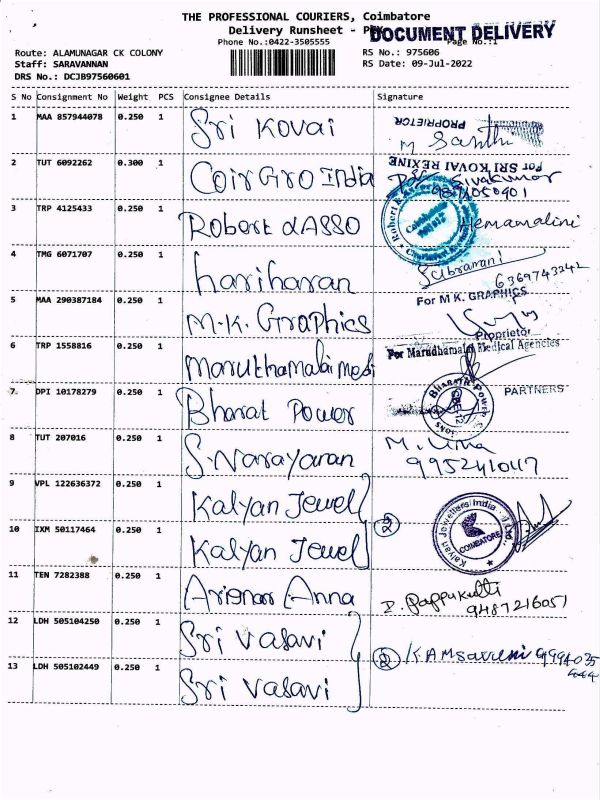 THE PROFESSIONAL COURIERS, Coimbatore
Delivery Runsheet -
DOCUMENT DELIVERY
Phone No.:0422-3505555
Page No.:1
Route: ALAMUNAGAR CK COLONY
RS No.: 975606
Staff: SARAVANNAN
RS Date: 09-Jul-2022
DRS No.: DCJB97560601
S No Consignment No Weight PCS Consignee Details Signature
1 MAA 857944078 0.250 1 Sri Kovai
PROPRIETOR
M Santhi
For SRI KOVAI REXINE
2 TUT 6092262 0.300 1 Coir Gro India
Sivakumar
3 TRP 4125433 0.250 1 Robert &ASSO Hemamalini
Coimbatore
4 TMG 6071707 0.250 1 hariharan
Subramani
6369743342
5 MAA 290387184 0.250 1 M.K. Graphics
For M K. GRAPHICS
Proprietor
6 TRP 1558816 0.250 1 Maruthamalai Medi
For Marudhamalai Medical Agencies
PARTNERS
7 DPI 10178279 0.250 1 Bharat Power
Bharath Power
8 TUT 207016 0.250 1 S.Narayanan
M. Uma
9952410117
9 VPL 122636372 0.250 1 Kalyan Jewel
2
Kalyan Jewellers India
COIMBATORE
10 IXM 50117464 0.250 1 Kalyan Jewel
11 TEN 7282388 0.250 1 Arignar Anna
D. Pappukutti
9487216051
12 LDH 505104250 0.250 1 Sri Vasavi
2
13 LDH 505102449 0.250 1 Sri Vasavi